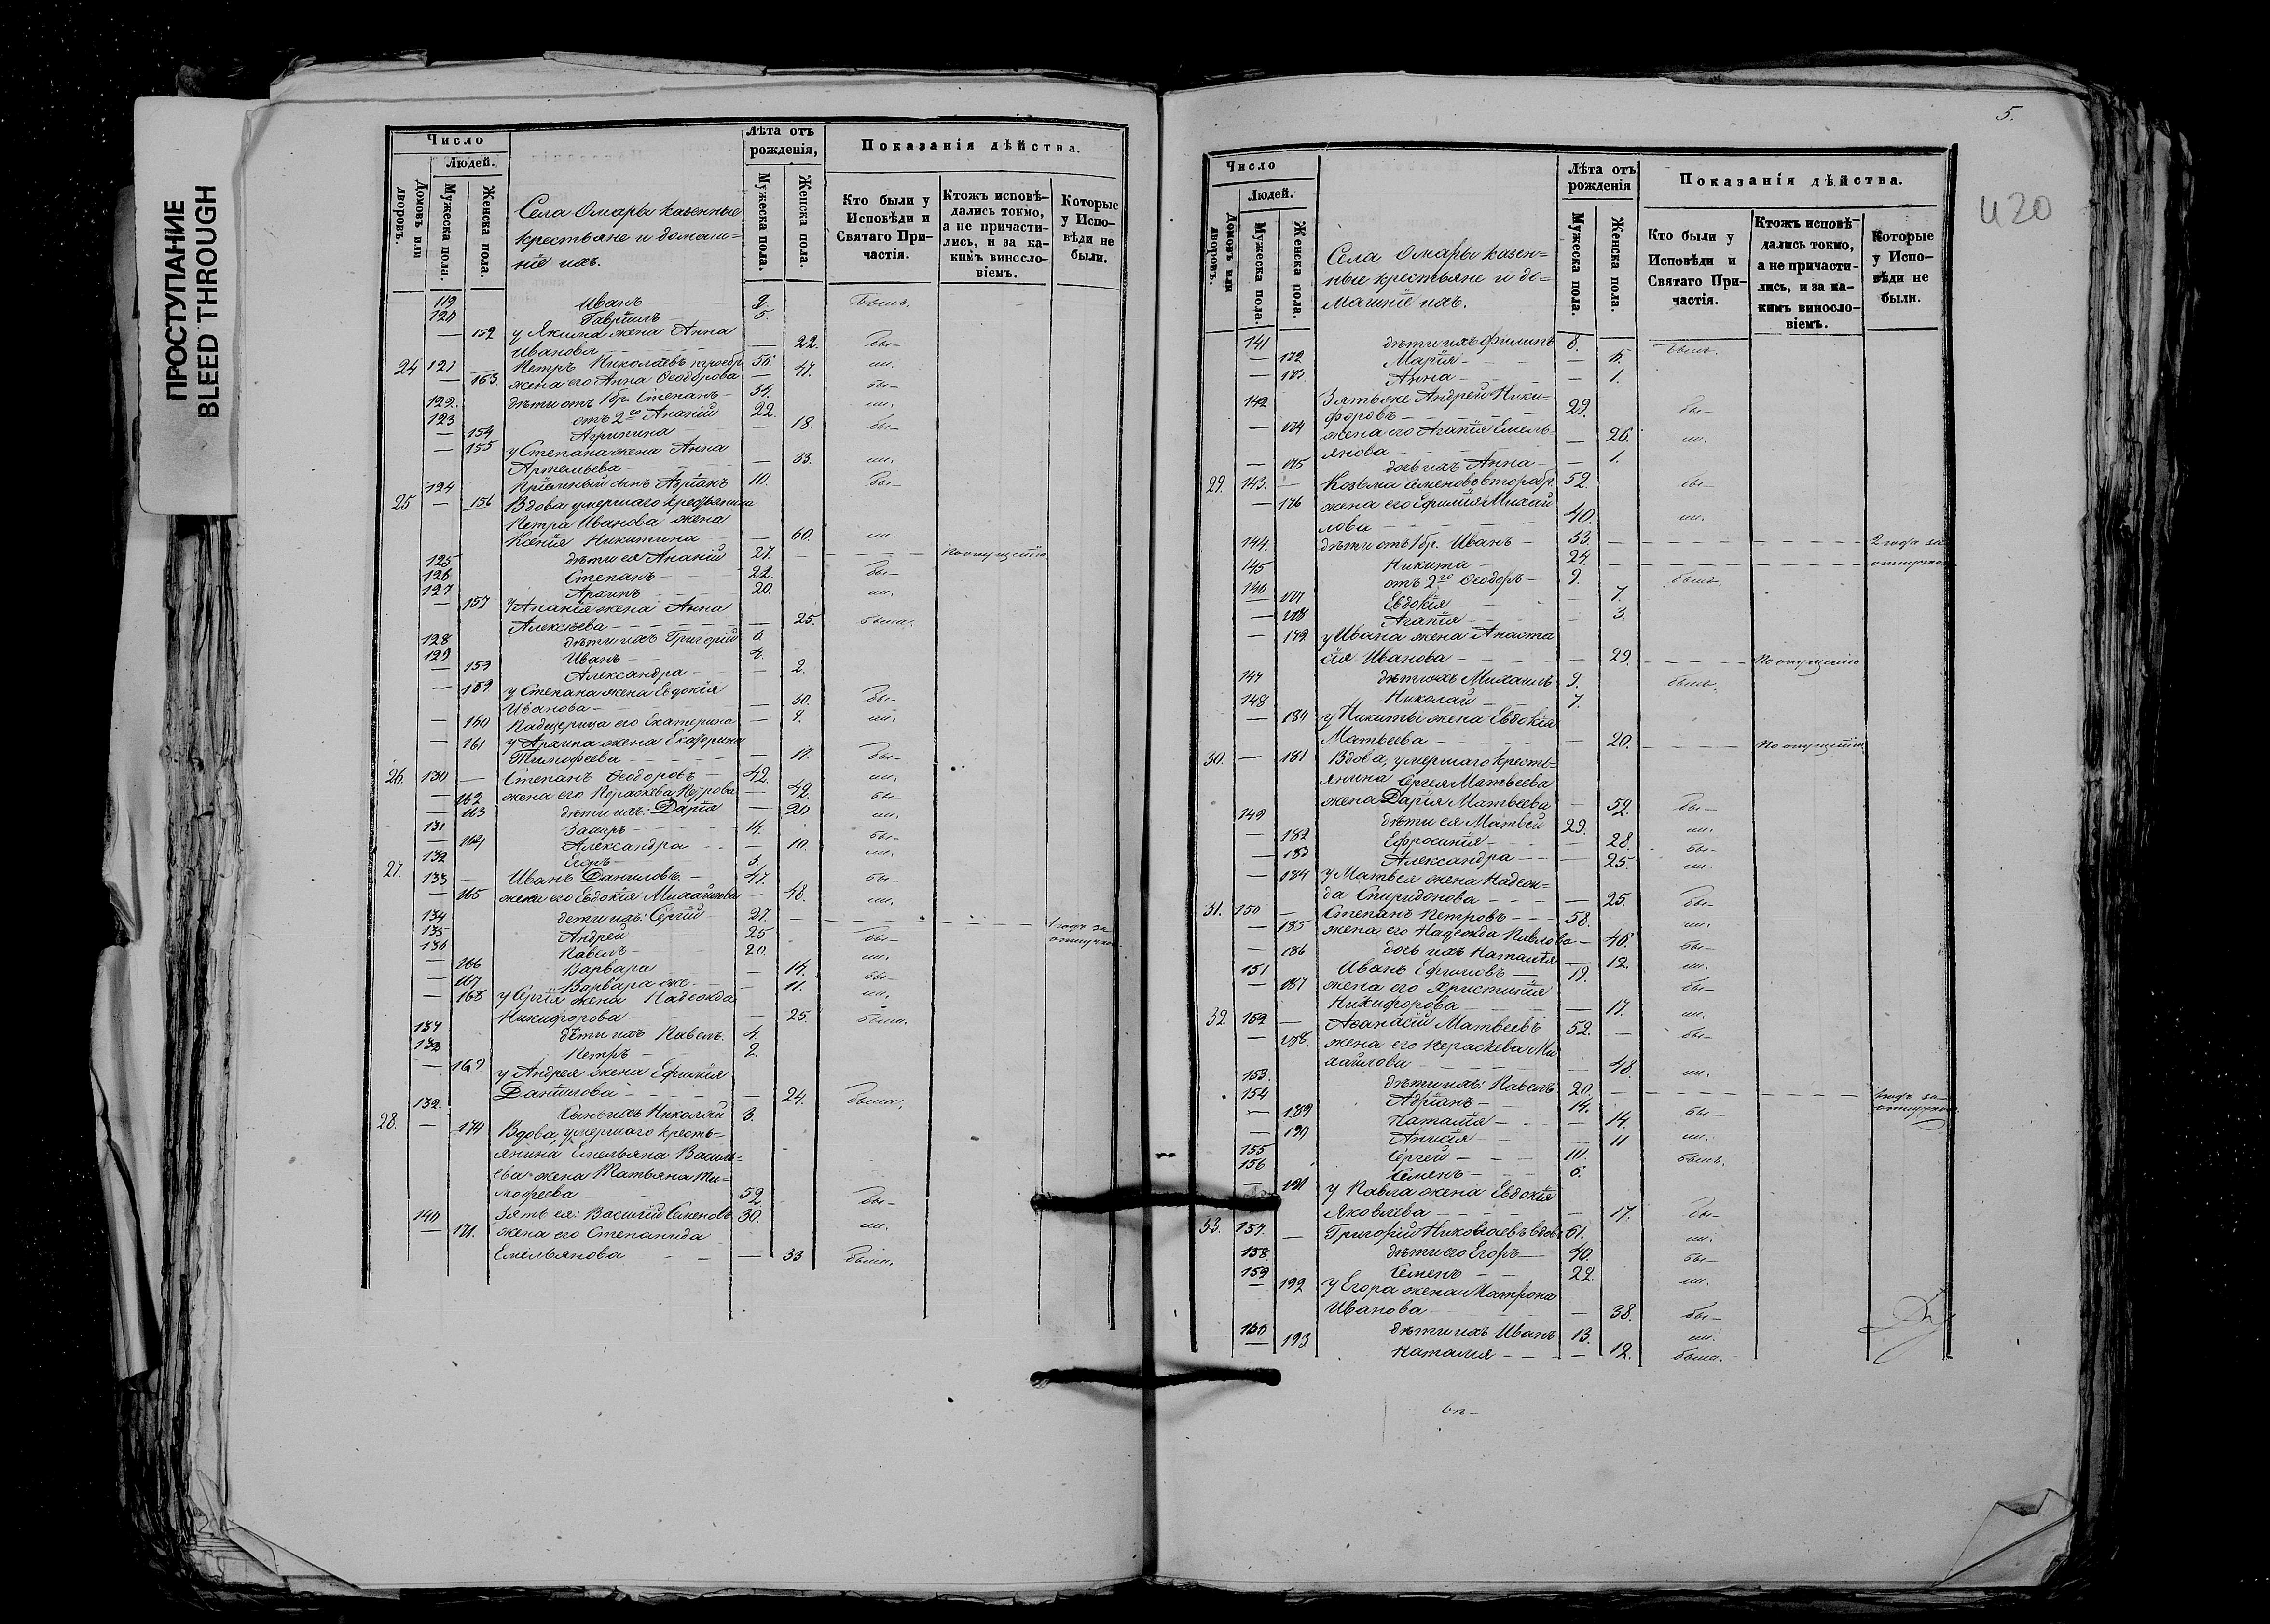 ПРОСТУПАНИЕ
BLEED THROUGH
Число
Людей.
Домовъ или дворовъ.
Мужеска пола.
Женска пола.
Села Омары казенные
крестьяне и домаш-
ніе ихъ.
Лѣта отъ рожденія,
Мужеска пола.
Женска пола.
Показанія дѣйства.
Кто были у Исповѣди и Святаго Причастія.
Ктожъ исповѣдались токмо, а не причастились, и за какимъ винословіемъ.
Которые у Исповѣди не были.
119 Иванъ былъ.
120 Гавріилъ 5.
152 у Якима жена Анна
Иванова 22. бы-
24 121 Петръ Николаевъ ли.
153. жена его Анна Ѳеодорова 47. бы-
122. дѣти отъ 1 бр. Степанъ ли.
123 отъ 2го Ананій 22.
154 Агрипина 18. бы-
155 у Степана жена Анна
Артемьева 33. ли.
124 Пріемный сынъ Адріанъ 10. бы-
25 156 Вдова умершаго крестьянина
Петра Иванова жена
Ксенія Никитина 60. ли.
125 дѣти ея Ананій 27. по опущенію
126 Степанъ 22. бы-
127 20. ли.
157 у Ананія жена Анна
Алексѣева 25. была.
128 дѣти ихъ Григорій 6.
129 Иванъ 4.
158 Александра 2.
159 у Степана жена Евдокія
Иванова 30. бы-
160 Падщерица его Екатерина 9. ли.
161 жена Екатерина
Тимофеева 17. бы-
26. 130 Степанъ Ѳеодоровъ 42. ли.
162 жена его Параскева Петрова 42. бы-
163 дѣти ихъ: Дарія 20 ли.
131 Захаръ 14. бы-
164 Александра 10. ли.
132 Егоръ 3.
27. 133 Иванъ Даниловъ 47. бы-
165 жена его Евдокія Михайлова 48. ли.
134 дети ихъ: Сергій 27. 1 годъ за
135 Андрей 25 бы- отлучкою
136 Павелъ 20. ли.
166 Варвара 14. бы-
167 Варвара же 11. ли.
168 у Сергія жена Надежда
Никифорова 25. была.
137 дѣти ихъ Павелъ. 4.
138 Петръ 2.
169 у Андрея жена Ефимія
Даніилова 24. была.
139. сынъ ихъ Николай 3.
28. 170 Вдова, умершаго кресть-
янина Емельяна Василь-
ева жена Татьяна Ти-
мофеева 52. бы-
140 Зять ея: Василій Семеновъ 30. ли.
171. жена его Степанида
Емельянова 33 была.
5.
420
Число
Людей.
Домовъ или дворовъ.
Мужеска пола.
Женска пола.
Села Омары казен-
ные крестьяне и до-
машніе ихъ.
Лѣта отъ рожденія
Мужеска пола.
Женска пола.
Показанія дѣйства.
Кто были у Исповѣди и Святаго Причастія.
Ктожъ исповѣдались токмо, а не причастились, и за какимъ винословіемъ.
Которые у Исповѣди не были.
141 дѣти ихъ Филипъ 8. былъ.
172 Марія 5.
173 Анна 1.
142 Зятъ же Андрей Ники-
форовъ 29. бы-
174 жена его Агапія Емель-
янова 26. ли.
175 дочь ихъ Анна 1.
29. 143. Козьма Семеновъ второбр. 52. бы-
176 жена его Ефимія Михай
лова 40. ли.
144. дѣти отъ 1 бр. Иванъ 33. 2 года за
145 Никита 24. отлучкою
146 отъ 2го Ѳеодоръ 9. былъ.
177 Евдокія 7.
178 Агапія 3.
179 у Ивана жена Анаста
сія Иванова 29. по опущенію
147 дѣти ихъ Михаилъ 9. былъ.
148 Николай 7.
180 у Никиты жена Евдокія
Матвеева 20. по опущенію
30. 181 Вдова, умершаго кресть-
янина Сергея Матвеева
жена Дарія Матвеева 52. бы-
149 дѣти ея Матвей 29. ли.
182 Ефросинія 28. бы-
183 Александра 25. ли.
184 у Матвея жена Надеж-
да Спиридонова 25. бы-
31. 150 Степанъ Петровъ 58. ли.
185 жена его Надежда Павлова 46. бы-
186 дочь ихъ Наталія 12. ли.
151 Иванъ Ефимовъ 19. бы-
187 жена его Христинія
Никифорова 17. ли.
32. 152 Аѳанасій Матвеевъ 52. бы-
188. жена его Параскева Ми
хайлова 48. ли.
153. дѣти ихъ: Павелъ 20. 1 годъ за
154 Адріанъ 14. отлучкою
189 Наталія 14. бы-
190 Анисія 11 ли.
155 Сергей 10. былъ.
156 Семенъ 6.
191 у Павла жена Евдокія
Яковлева 17. бы-
33. 157. Григорій Николаевъ вдовъ 61. ли.
158 дѣти его Егоръ 40. бы-
159 Семенъ 22. ли.
192 у Егора жена Матрона
Иванова 38. бы-
160 дѣти ихъ Иванъ 13. ли.
193 Наталия 12. была.